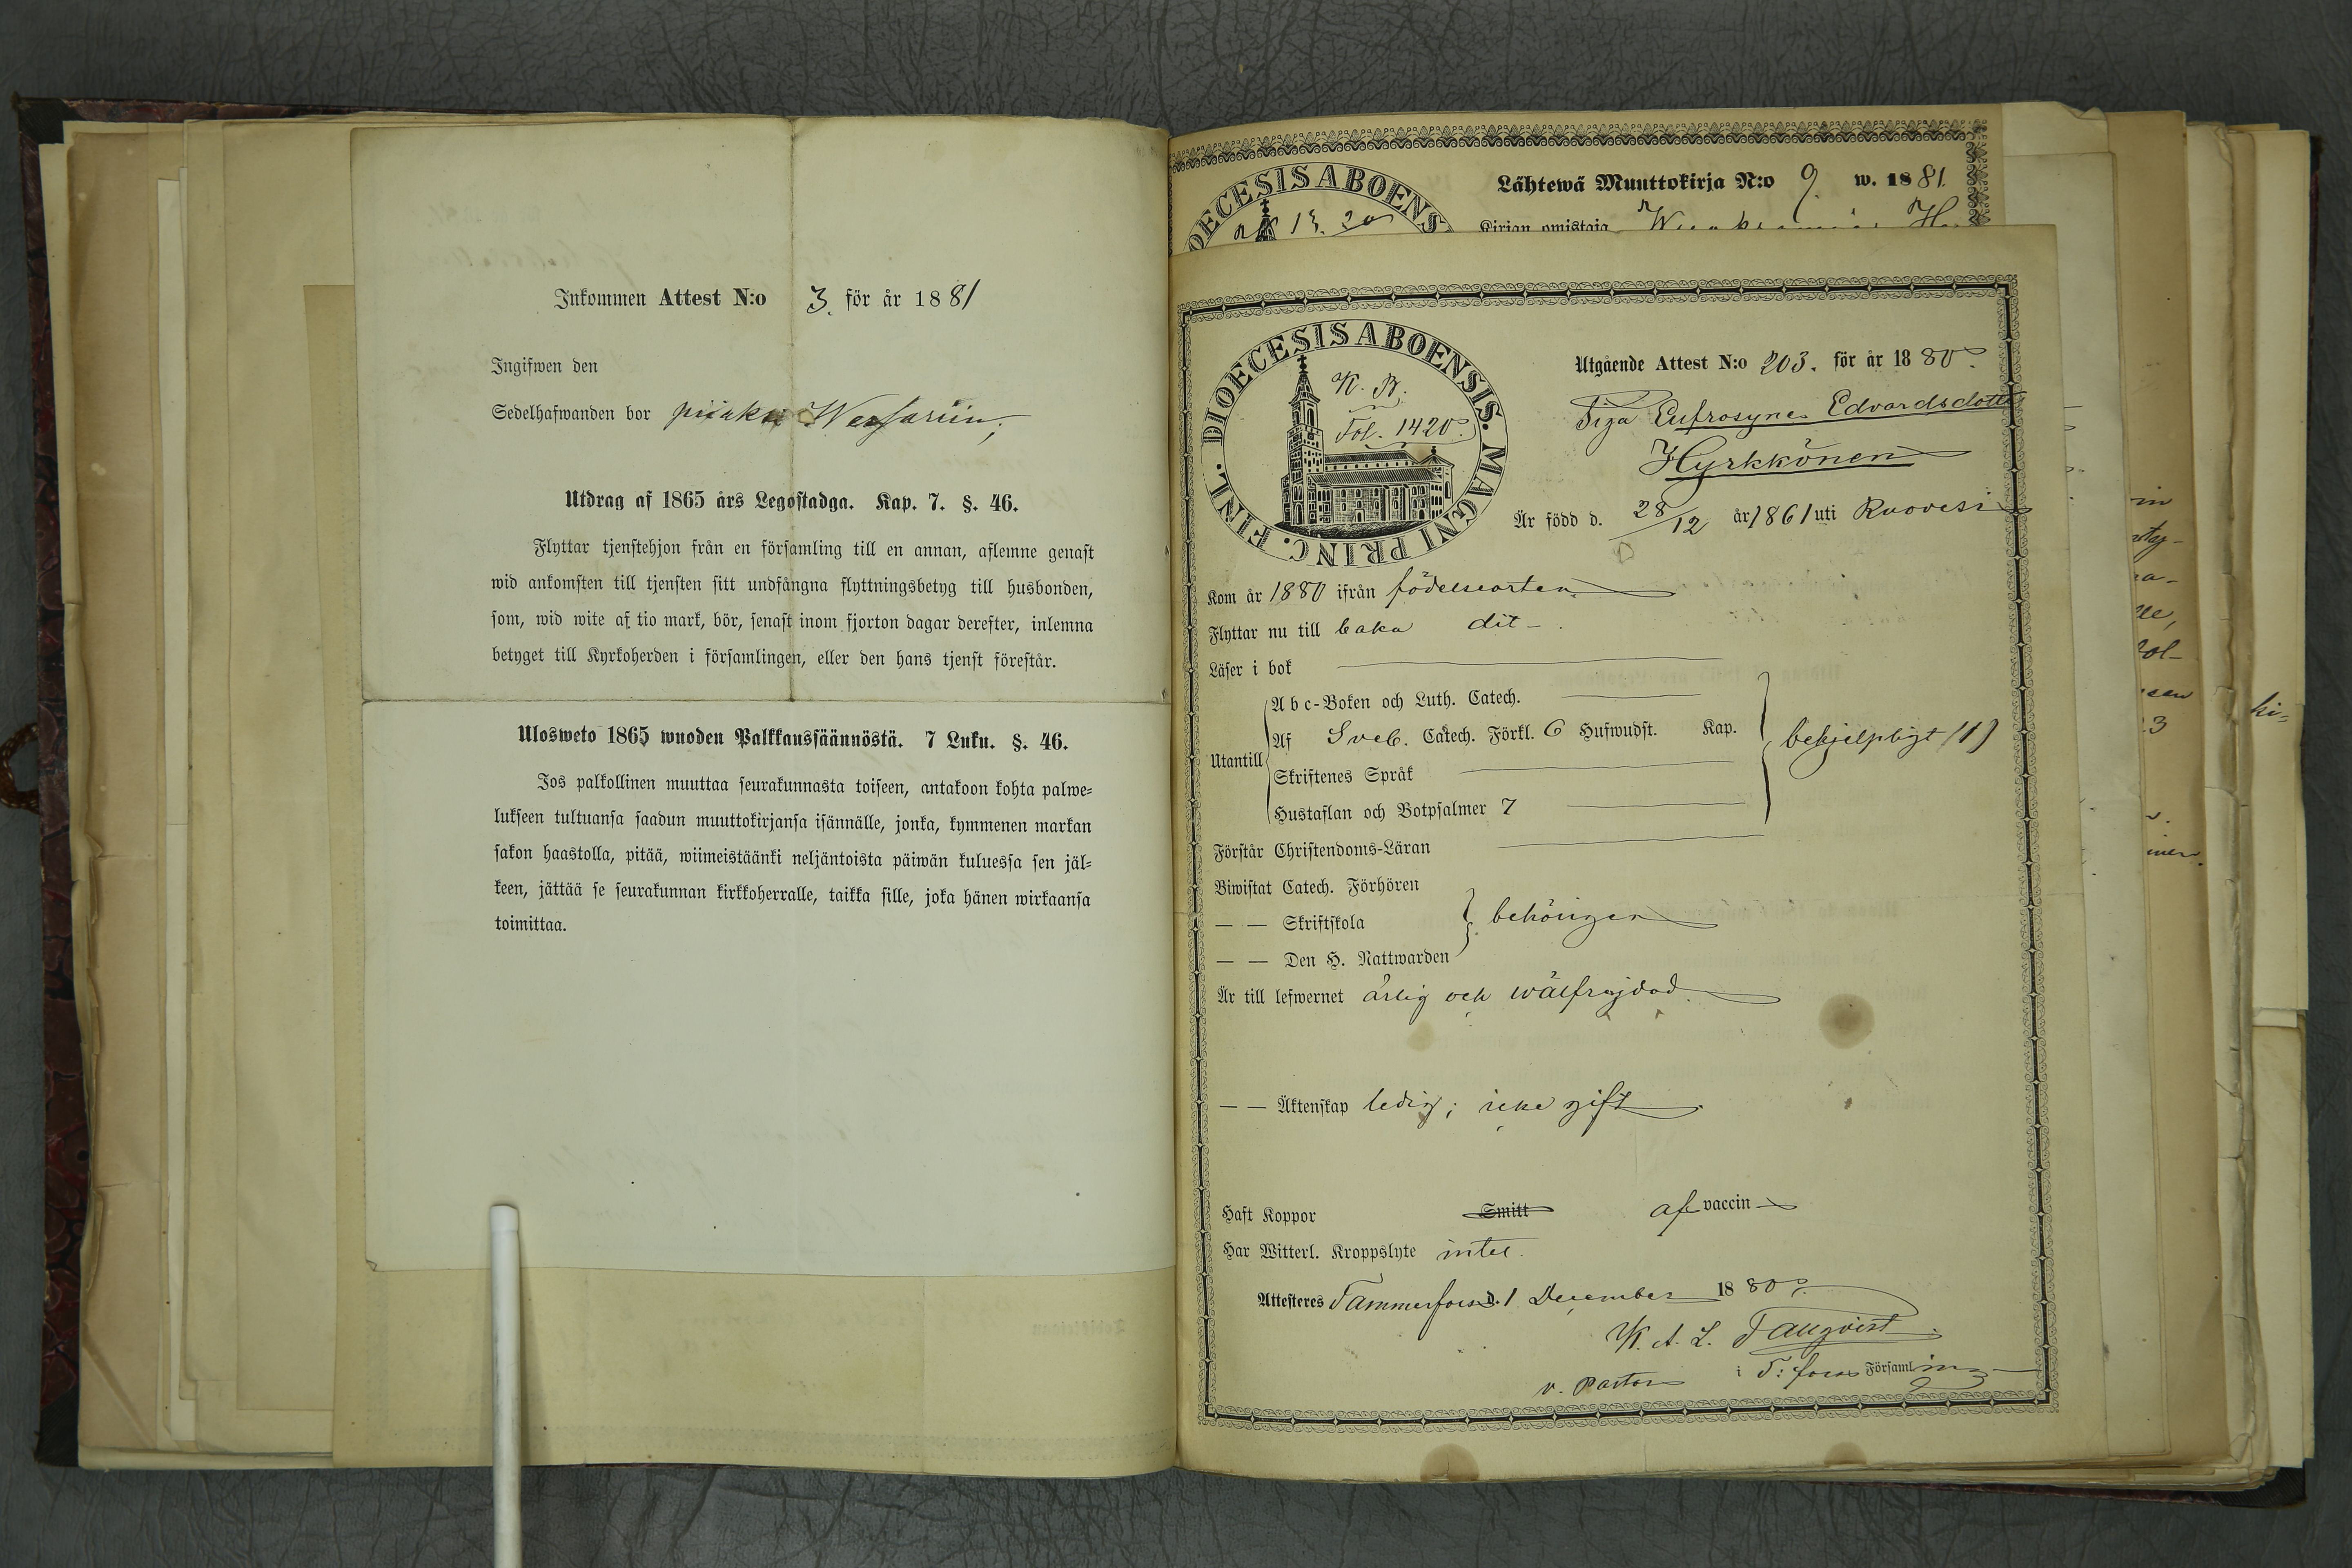 Inkommen Attest N:o 3. för år 1881
Ingifwen den
Sedelhafwanden bor piiaksi
Utdrag af 1865 års Legostadga. Kap. 7. §. 46.
Flyttar tjenstehjon från en församling till en annan, aflemne genast
wid ankomsten till tjensten sitt undfångna flyttningsbetyg till husbonden,
som, wid wite af tio mark, bör, senast inom fjorton dagar derefter, inlemna
betyget till Kyrkoherden i församlingen, eller den hans tjenst förestår.
Ulosweto 1865 wuoden Palkkaussäännöstä. 7 Luku. §. 46.
Jos palkollinen muuttaa seurakunnasta toiseen, antakoon kohta palwe-
lukseen tultuansa saadun muuttokirjansa isännälle, jonka, kymmenen markan
sakon haastolla, pitää, wiimeistäänki neljäntoista päiwän kuluessa sen jäl-
keen, jättää se seurakunnan kirkkoherralle, taikka sille, joka hänen wirkaansa
toimittaa.
DIOECESIS ABOENS
Lähtewä Muuttokirja N:o 9 w. 1881.
Kirjan omistaja
DIOECESIS ABOENSIS. MAGNI PRINC. FINL.
K. B.
Fol. 1420.
Utgående Attest N:o 203. för år 1880.
Piga Eufrosyne Edvardsdotter
Hyrkkönen
Är född d. 28/12 år 1861 uti Ruovesi
Kom år 1880 ifrån födelseorten
Flyttar nu till baka dit
Läser i bok
Utantill
Abc-Boken och Luth. Catech.
Af Sveb. Catech. Förkl. 6 Hufwudst. Kap.
Skriftenes Språk
Hustaflan och Botpsalmer 7
behjelpligt (1)
Förstår Christendoms-Läran
Biwistat Catech. Förhören
— — Skriftskola
— — Den H. Nattwarden
behörigen
Är till lefwernet ärlig och wälfrejdad.
— — Äktenskap ledig; icke gift
Haft Koppor Smitt af vaccin
Har Witterl. Kroppslyte intet.
Attesteres Tammerfors d. 1 December 1880
K. A. L. Tallqvist
v. Pastor i T:fors Församling